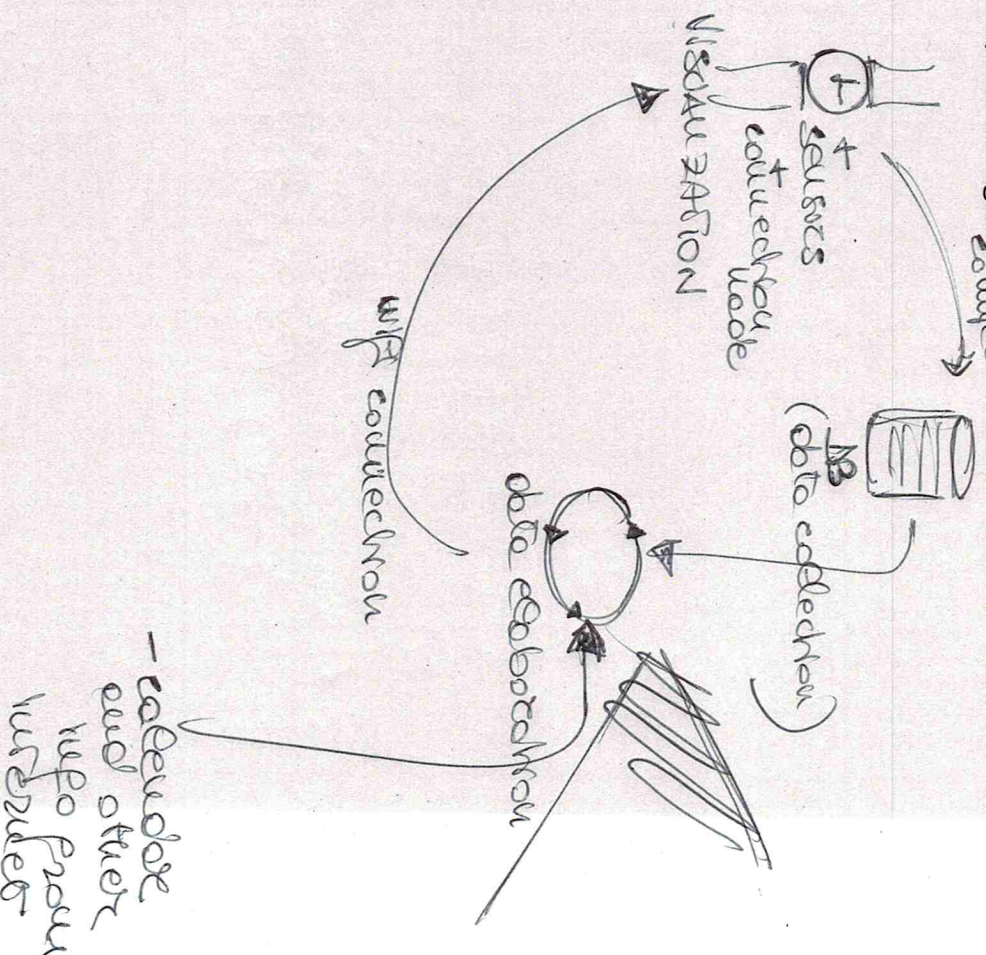 +
sensors
+
connection
node
VISUALIZATION
DB
(data collection)
data elaboration
wifi connection
- calendar
and other
info from
internet